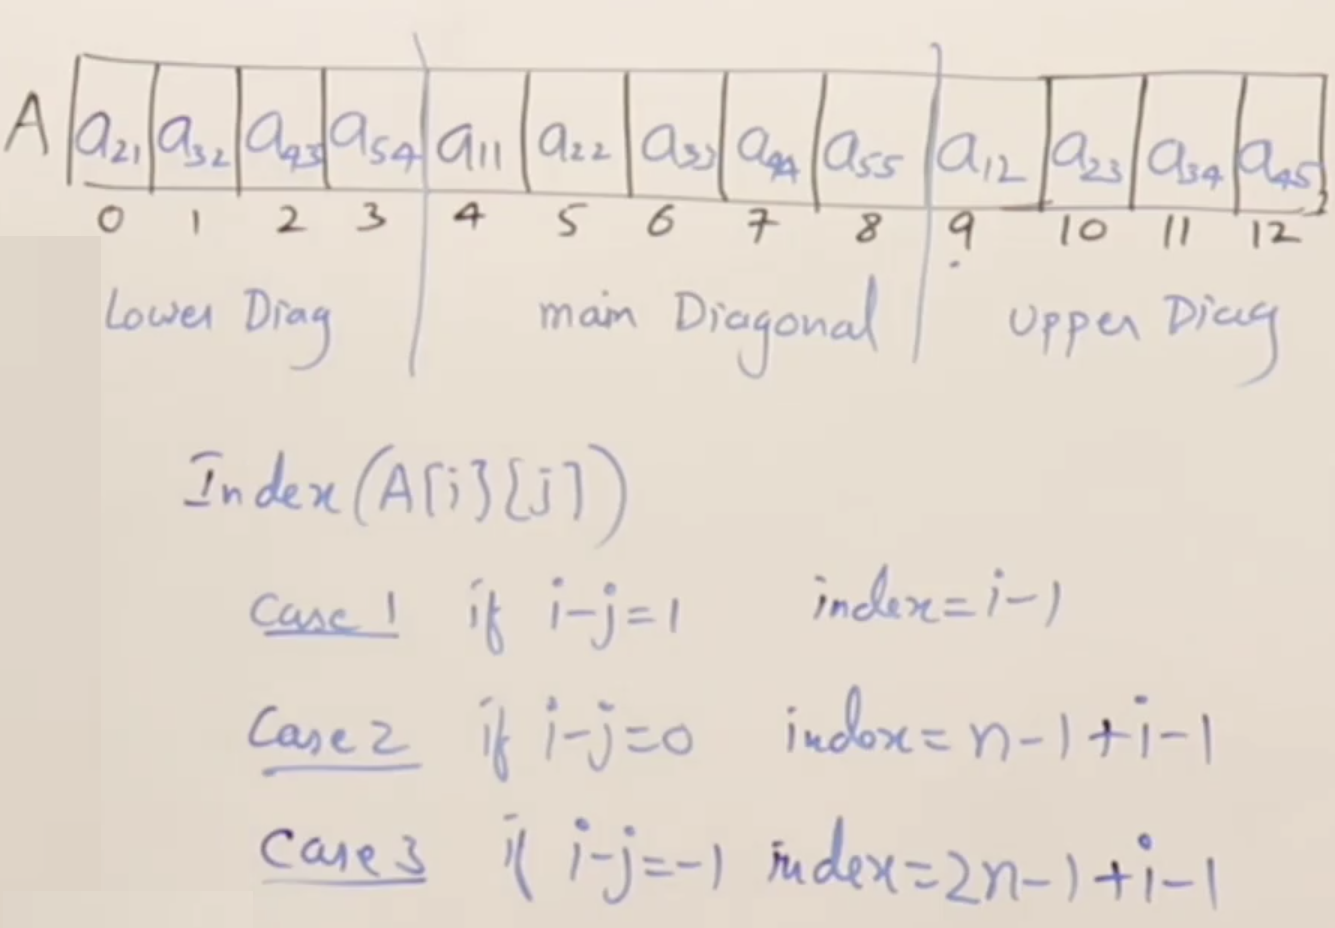 A a21 a32 a43 a54 a11 a22 a33 a44 a55 a12 a23 a34 a45
0 1 2 3 4 5 6 7 8 9 10 11 12
Lower Diag main Diagonal Upper Diag
Index(A[i][j])
Case 1 if i-j=1 index=i-1
Case 2 if i-j=0 index=n-1+i-1
Case 3 if i-j=-1 index=2n-1+i-1